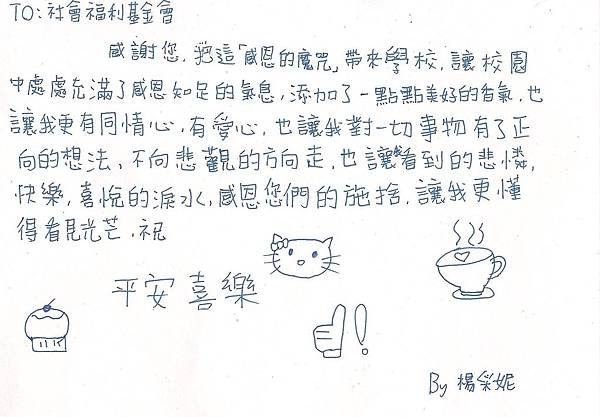 TO:社會福利基金會
感謝您，把這「感恩的魔咒」帶來學校，讓校園
中處處充滿了感恩知足的氣息，添加了一點點美好的香氣，也
讓我更有同情心，有愛心，也讓我對一切事物有了正
向的想法、不向悲觀的方向走，也讓看到的悲憐，
快樂，喜悅的淚水，感恩您們的施捨，讓我更懂
得看見光芒，祝
平安喜樂
By 楊采妮